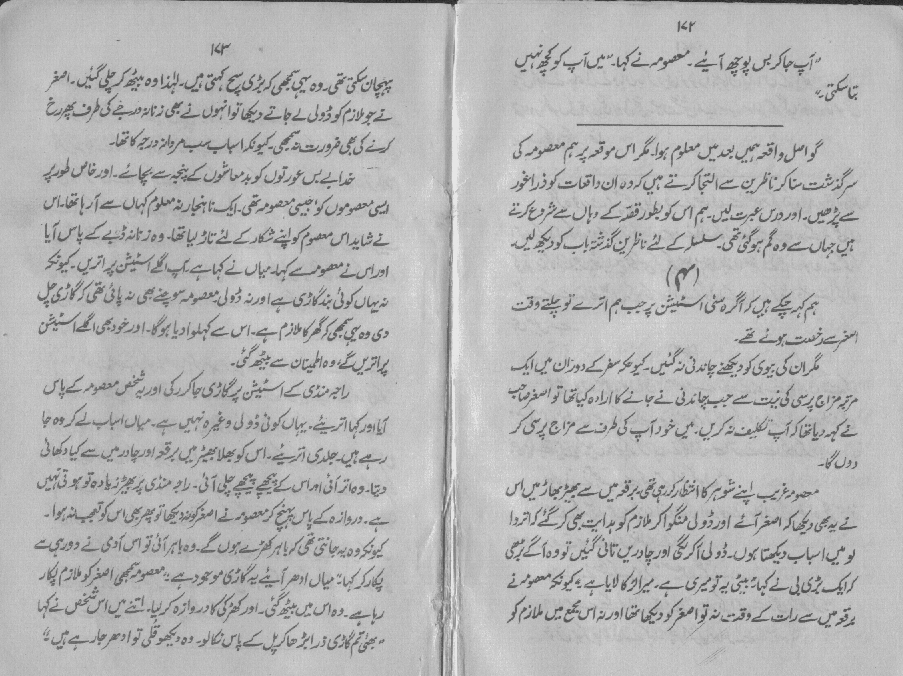 ۱۷۲
"آپ جا کر بس پوچھ آئیے۔ معصومہ نے کہا۔ "میں آپ کو کچھ نہیں
بتا سکتی۔"
گو اصل واقعہ ہمیں بعد میں معلوم ہوا۔ مگر اس موقعہ پر ہم معصومہ کی
سرگذشت سنا کر ناظرین سے التجا کرتے ہیں کہ وہ ان واقعات کو ذرا غور
سے پڑھیں۔ اور درس عبرت لیں۔ ہم اس کو بطور قصّہ کے وہاں سے شروع کرتے
ہیں جہاں سے وہ گم ہو گئی تھی۔ سلسلہ کے لئے ناظرین گذشتہ باب کو دیکھ لیں۔
(۴)
ہم کہہ چکے ہیں کہ آگرہ سٹی اسٹیشن پر جب ہم اترے تو چلتے وقت
اصغر سے رخصت ہوئے تھے۔
مگر ان کی بیوی کو دیکھنے چاندنی نہ گئیں۔ کیونکہ سفر کے دوران میں ایک
مرتبہ مزاج پرسی کی نیت سے جب چاندنی نے جانے کا ارادہ کیا تھا تو اصغر صاحب
نے کہہ دیا تھا کہ آپ تکلیف نہ کریں۔ میں خود آپ کی طرف سے مزاج پرسی کر
دوں گا۔
معصومہ غریب اپنے شوہر کا انتظار کر رہی تھی۔ برقعہ میں سے بھیڑ بھاڑ میں اس
نے یہ بھی دیکھا کہ اصغر آئے اور ڈولی منگوا کر ملازم کو ہدایت بھی کر گئے کہ اتروا
لو میں اسباب دیکھتا ہوں۔ ڈولی آ کر لگی اور چادریں تانی گئیں تو وہ آگے بڑھی
کہ ایک بڑی بی نے کہا "بیٹی یہ تو میری ہے۔ میرا لڑکا لایا ہے" کیونکہ معصومہ نے
برقعہ میں سے رات کے وقت نہ تو اصغر کو دیکھا تھا اور نہ اس مجمع میں ملازم کو
۱۷۳
پہچان سکتی تھی۔ وہ یہی سمجھی کہ بڑی بی سچ کہتی ہیں۔ لہٰذا وہ بیٹھ کر چلی گئیں۔ اصغر
نے جو ملازم کو ڈولی لے جاتے دیکھا تو انہوں نے بھی زنانہ درجے کی طرف پھر رخ
کرنے کی بھی ضرورت نہ سمجھی۔ کیونکہ اسباب سب مردانہ درجہ کا تھا۔
خدا بے بس عورتوں کو بدمعاشوں کے پنجہ سے بچائے۔ اور خاص طور پر
ایسی معصوموں کو جیسی معصومہ تھی۔ ایک ناہنجار نہ معلوم کہاں سے آ رہا تھا۔ اس
نے شاید اس معصوم کو اپنے شکار کے لئے تاڑ لیا تھا۔ وہ زنانہ ڈبے کے پاس آیا
اور اس نے معصومہ سے کہا۔ میاں نے کہا ہے۔ آپ اگلے اسٹیشن پر اتریں۔ کیونکہ
نہ یہاں کوئی بند گاڑی ہے اور نہ ڈولی۔ معصومہ سوچنے بھی نہ پائی تھی کہ گاڑی چل
دی وہ یہی سمجھی کہ گھر کا ملازم ہے۔ اس سے کہلوا دیا ہوگا۔ اور خود بھی اگلے اسٹیشن
پر اتریں گے۔ وہ اطمینان سے بیٹھ گئی۔
راجہ منڈی کے اسٹیشن پر گاڑی جا کر رکی اور یہ شخص معصومہ کے پاس
آیا اور کہا اتریئے۔ یہاں کوئی ڈولی وغیرہ نہیں ہے۔ میاں اسباب لے کر وہ جا
رہے ہیں۔ جلدی اتریئے۔ اس کو بھلا بھیڑ میں برقعہ اور چادر میں سے کیا دکھائی
دیتا۔ وہ اتر آئی اور اس کے پیچھے پیچھے چلی آئی۔ راجہ منڈی پر بھیڑ زیادہ تو ہوتی نہیں
ہے۔ دروازہ کے پاس پہنچ کر معصومہ نے اصغر کو نہ دیکھا تو پھر بھی اس کو تعجب نہ ہوا۔
کیونکہ وہ یہ جانتی تھی کہ باہر کھڑے ہوں گے۔ وہ باہر آئی تو اس آدمی نے دور ہی سے
پکار کر کہا "میاں ادھر آیئے یہ گاڑی موجود ہے" معصومہ سمجھی اصغر کو ملازم پکار
رہا ہے۔ وہ اس میں بیٹھ گئی۔ اور کھڑکی کا دروازہ کر لیا۔ اتنے میں اس شخص نے کہا
"بھئی تم گاڑی ذرا بڑھا کر پل کے پاس نکالو۔ وہ دیکھو قلی تو ادھر جا رہے ہیں"